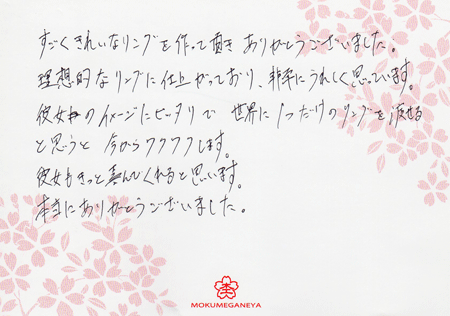 すごくきれいなリングを作って頂きありがとうございました。
理想的なリングに仕上がっており、非常にうれしく思っています。
彼女のイメージにピッタリで 世界に1つだけのリングを渡せる
と思うと 今からワクワクします。
彼女もきっと喜んでくれると思います。
本当にありがとうございました。
MOKUMEGANEYA